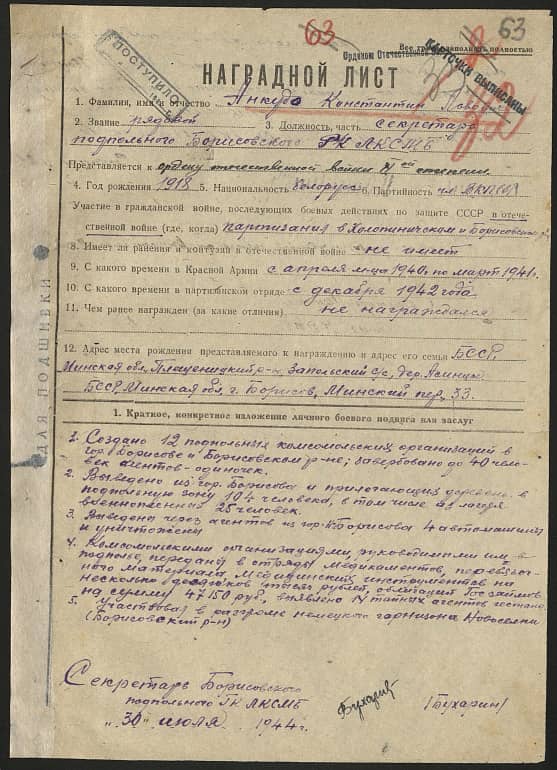 63
63
Все графы заполнять полностью
Орденом Отечественной
КАРТОЧКИ ВЫПИСАНЫ
ПОСТУПИЛО
НАГРАДНОЙ ЛИСТ
1. Фамилия, имя и отчество Анкудо Константин
2. Звание рядовой 3. Должность, часть секретарь
подпольного Борисовского РК ЛКСМБ
Представляется к ордену отечественной войны II ей степени.
4. Год рождения 1918 5. Национальность белорус 6. Партийность чл. ВКП(б)
Участие в гражданской войне, последующих боевых действиях по защите СССР в отече-
ственной войне (где, когда) партизания в Холопиничском и Борисовском
8. Имеет ли ранения и контузии в отечественной войне не имеет
9. С какого времени в Красной Армии с апреля м-ца 1940г. по март 1941г.
10. С какого времени в партизанском отряде с декабря 1942 года
11. Чем ранее награжден (за какие отличия) не награждался
12. Адрес места рождения представляемого к награждению и адрес его семьи БССР,
Минская обл, Плещеницкий р-н, Запольский с/с, дер.
БССР Минская обл, г. Борисов, Минский пер, 33.
ДЛЯ ПОДШИВКИ
1. Краткое, конкретное изложение личного боевого подвига или заслуг
1. Создано 12 подпольных комсомольских организаций в
гор. Борисове и Борисовском р-не; завербовано до 40 чело-
век агентов-одиночек.
2. Выведено из гор. Борисова и прилегающих деревень в
подпольную зону 104 человека, в том числе из лагеря
военнопленных 25 человек.
3. Выведена через агентов из гор. Борисова 4 автомашины
и уничтожены
4. Комсомольскими организациями, руководимыми им в
подполье, передано в отряды медикаментов, перевязоч-
ного материала, медицинских инструментов на
несколько десятков тысяч рублей, облигаций Госзаймов
на сумму 47150 руб, выявлено 14 тайных агентов гестапо.
5. Участвовал в разгроме немецкого гарнизона Новоселки
(Борисовский р-н)
Секретарь Борисовского
подпольного ГК ЛКСМБ
Бухарин (Бухарин)
„30" июля 1944г.